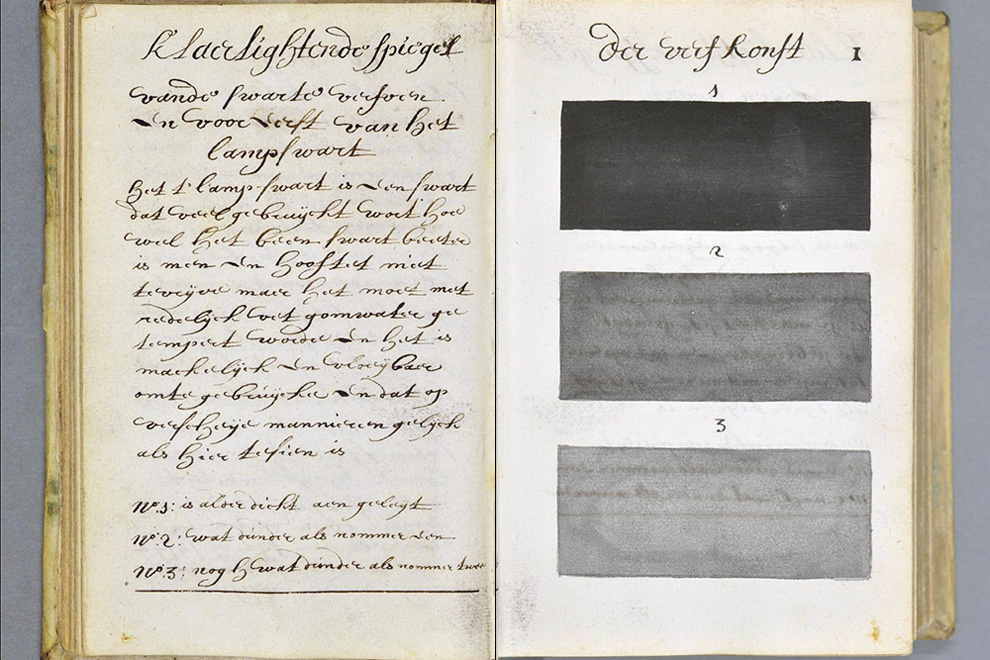 Klaerlightende spiegel
vande swarte verfven
En voor Eerst van het
lampswart
het t' lamp-swart is Een swart
dat veel gebruijckt wort hoe
wel het been swart beeter
is men En hooftet niet
te vrijve maer het moet met
redelijck vet gomwater ge
tempert worde En het is
mackelijck En vloeijbaer
omte gebruijcke En dat op
verscheije mannieren gelijck
als hier tesien is
No.1: is alder dickt aen gelegt
No.2: wat dunder als nommer Een
No.3: nog h wat dunder als nommer twee
der verf konst 1
1
2
3